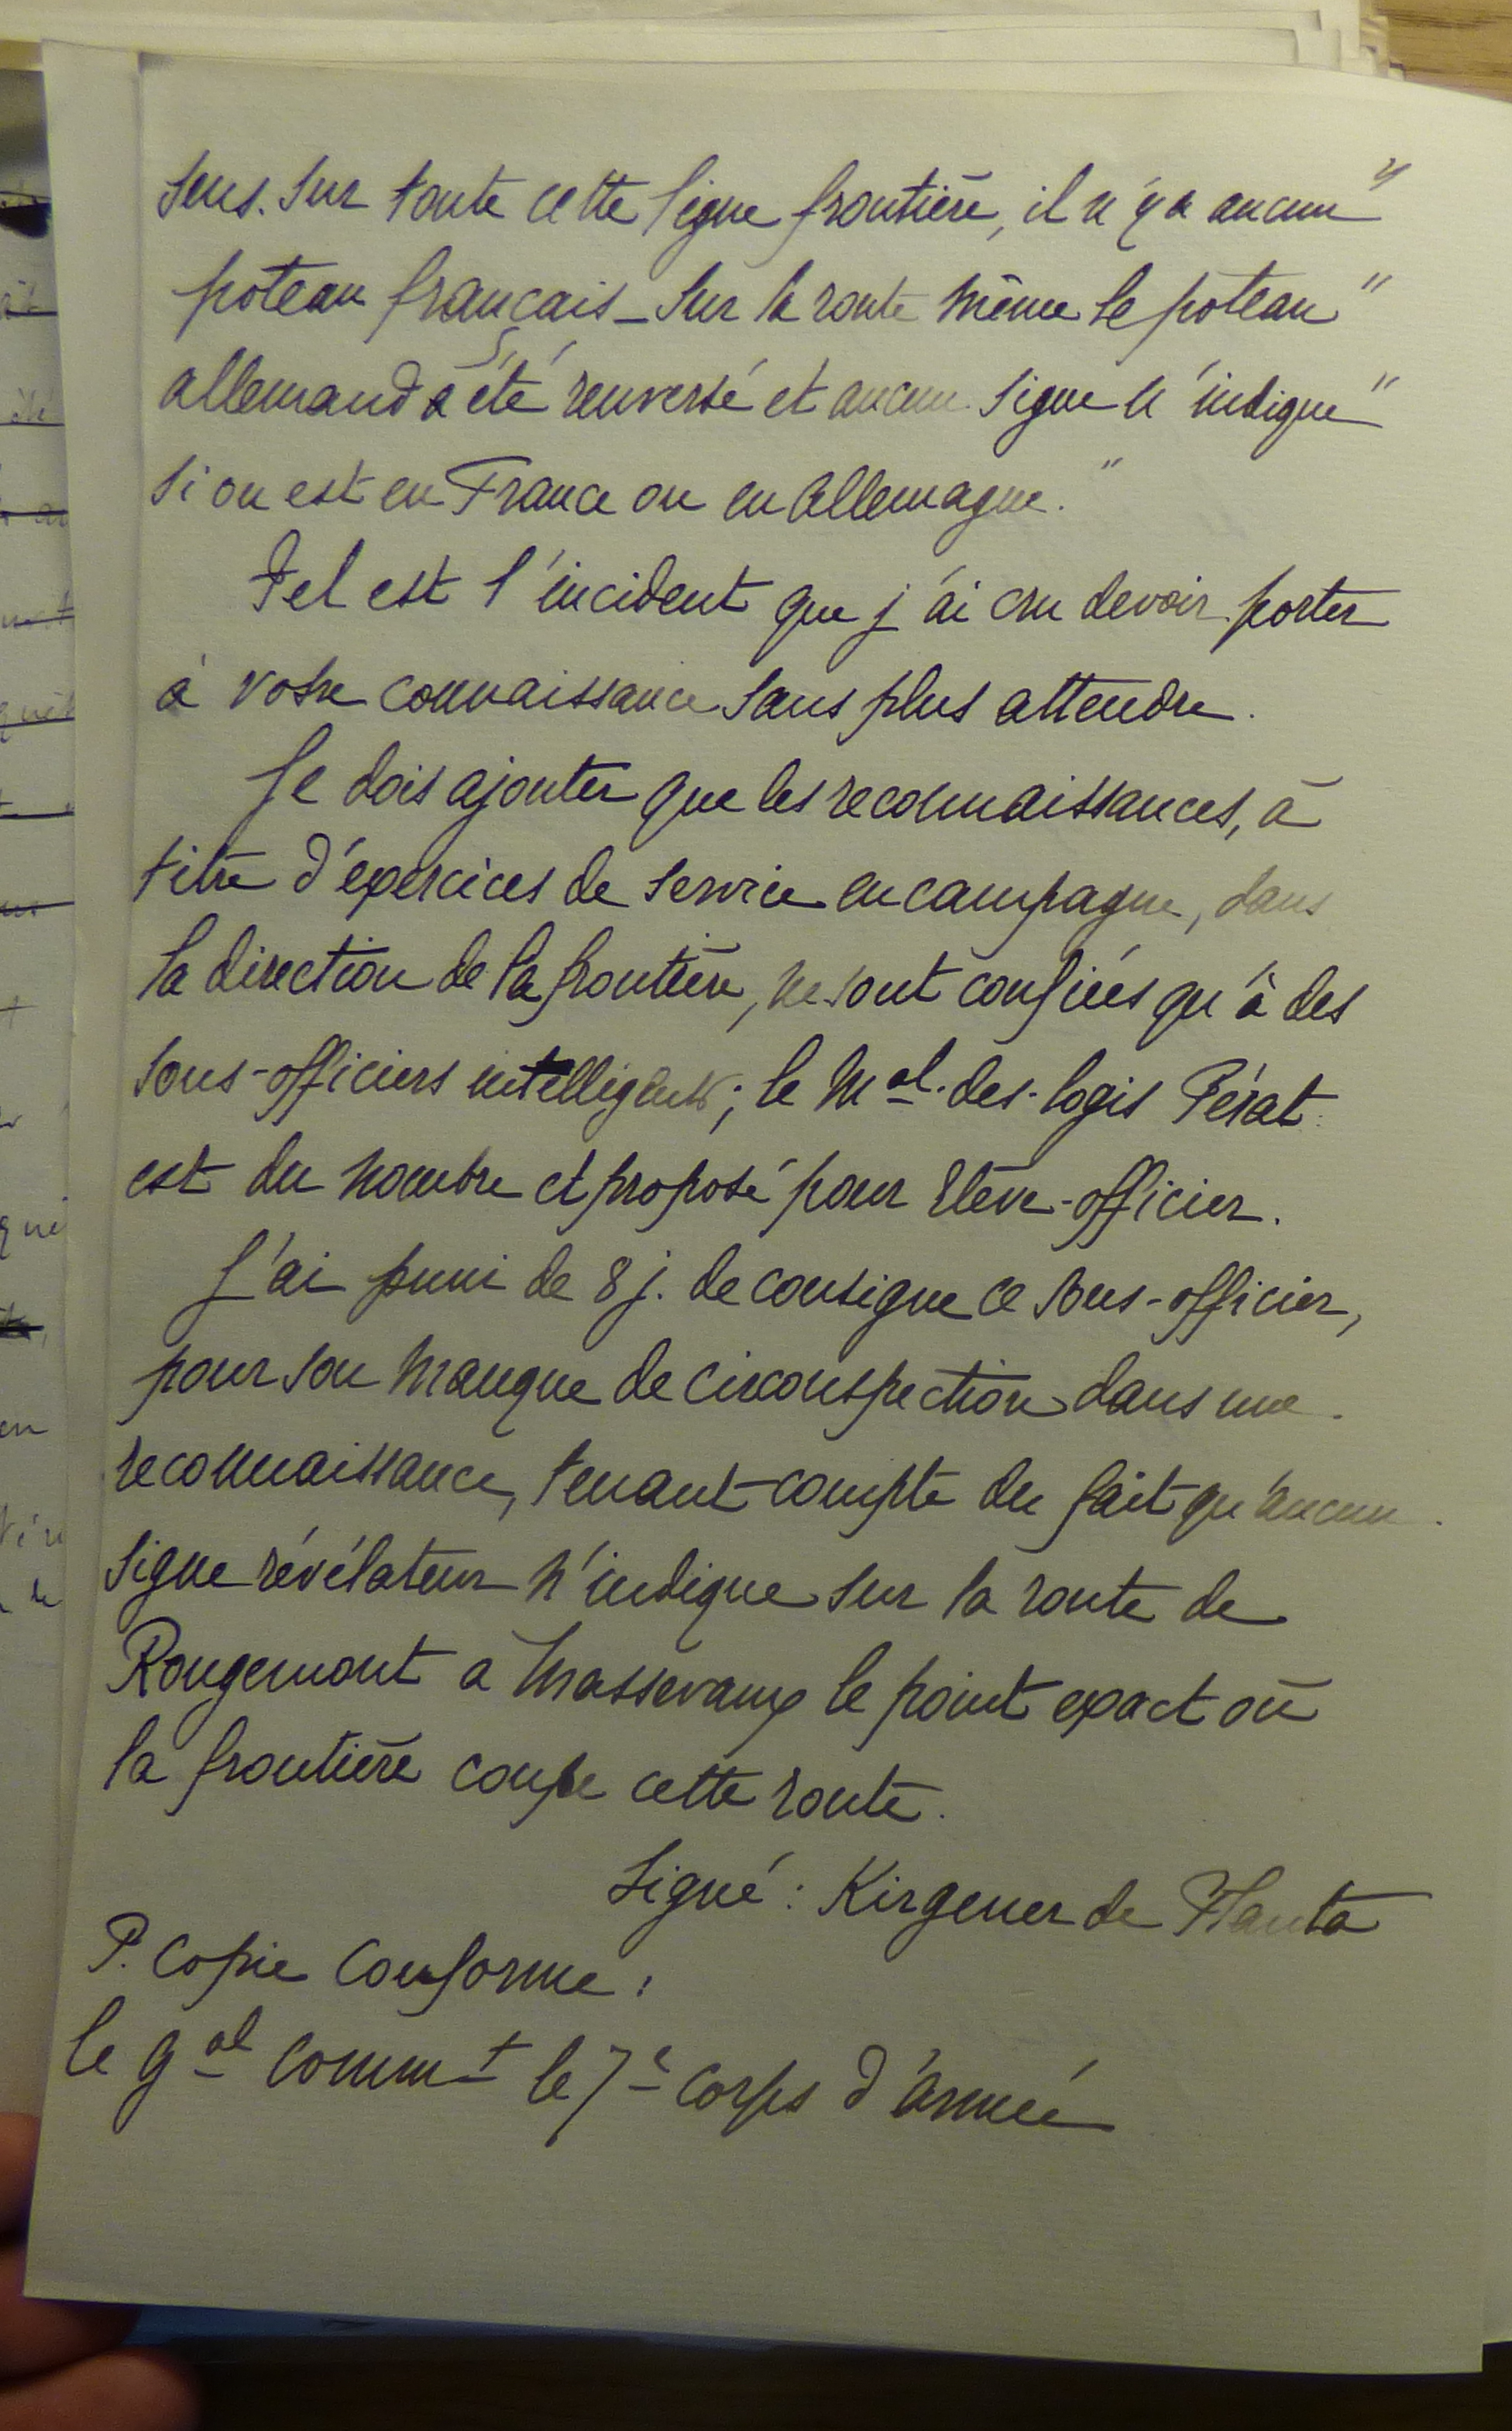 sens. Sur toute cette ligne frontière, il n'y a aucun "
poteau français_ Sur la route même le poteau "
allemand a été renversé et aucun signe n'indique "
si on est en France ou en Allemagne. "
Tel est l'incident que j'ai cru devoir porter
à votre connaissance sans plus attendre.
Je dois ajouter que les reconnaissances, à
titre d'exercices de service en campagne, dans
la direction de la frontière, ne sont confiées qu'à des
sous-officiers intelligents; le Mal. des-logis Pérat
est du nombre et proposé pour Elève-officier.
J'ai puni de 8 j. de consigne ce sous-officier,
pour son manque de circonspection dans une
reconnaissance, tenant compte du fait qu'aucun
signe révélateur n'indique sur la route de
Rougemont a Massevaux le point exact où
la frontière coupe cette route.
Signé : Kirgener de Planta
P. Copie Conforme :
le gal commt le 7e corps d'armée